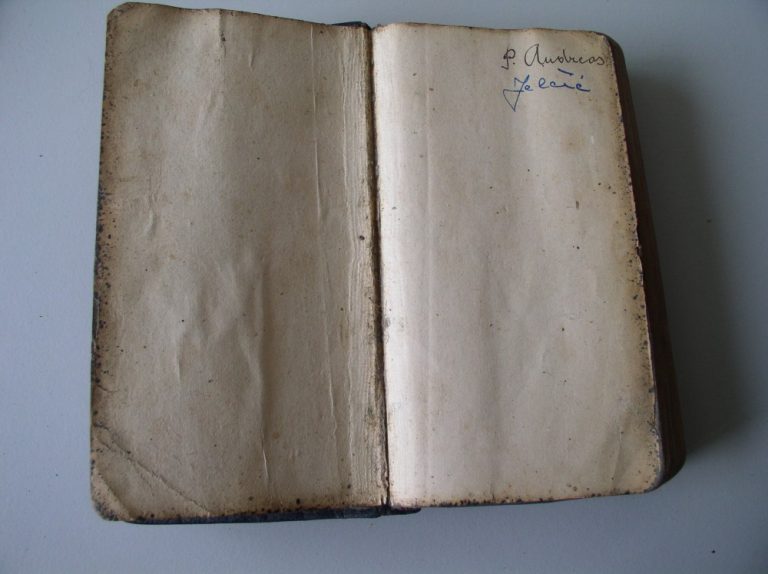 P. Andreas
Jelčić